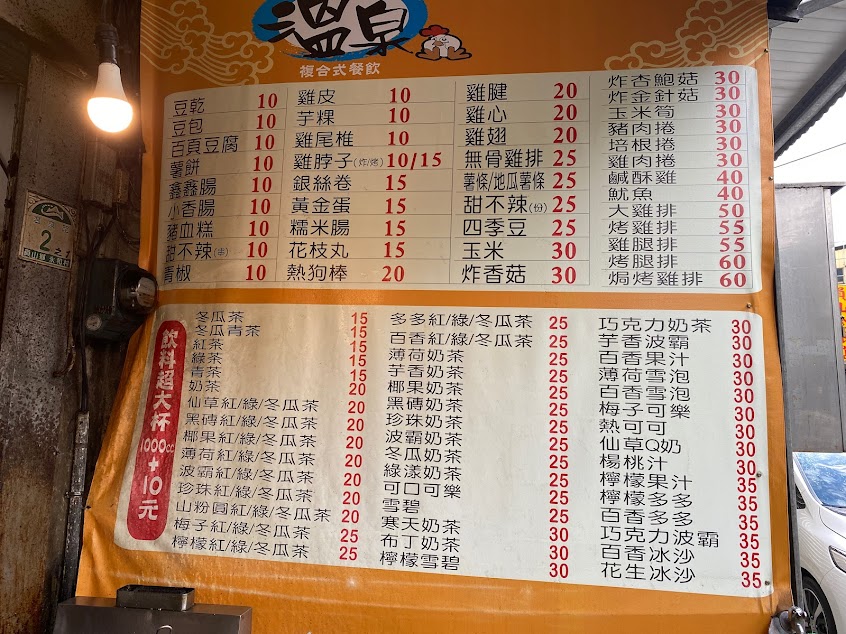 溫泉
複合式餐飲
豆乾 10
豆包 10
百頁豆腐 10
薯餅 10
鑫鑫腸 10
小香腸 10
豬血糕 10
甜不辣(串) 10
青椒 10
雞皮 10
芋粿 10
雞尾椎 10
雞脖子(炸/烤) 10/15
銀絲卷 15
黃金蛋 15
糯米腸 15
花枝丸 15
熱狗棒 20
雞腱 20
雞心 20
雞翅 20
無骨雞排 25
薯條/地瓜薯條 25
甜不辣(份) 25
四季豆 25
玉米 30
炸香菇 30
炸杏鮑菇 30
炸金針菇 30
玉米筍 30
豬肉捲 30
培根捲 30
雞肉捲 30
鹹酥雞 40
魷魚 40
大雞排 50
烤雞排 55
雞腿排 55
烤腿排 60
焗烤雞排 60
飲料超大杯1000cc+10元
冬瓜茶 15
冬瓜青茶 15
紅茶 15
綠茶 15
青茶 15
奶茶 20
仙草紅/綠/冬瓜茶 20
黑磚紅/綠/冬瓜茶 20
椰果紅/綠/冬瓜茶 20
薄荷紅/綠/冬瓜茶 20
波霸紅/綠/冬瓜茶 20
珍珠紅/綠/冬瓜茶 20
山粉圓紅/綠/冬瓜茶 20
梅子紅/綠/冬瓜茶 25
檸檬紅/綠/冬瓜茶 25
多多紅/綠/冬瓜茶 25
百香紅/綠/冬瓜茶 25
薄荷奶茶 25
芋香奶茶 25
椰果奶茶 25
黑磚奶茶 25
珍珠奶茶 25
波霸奶茶 25
冬瓜奶茶 25
綠漾奶茶 25
可口可樂 25
雪碧 25
寒天奶茶 30
布丁奶茶 30
檸檬雪碧 30
巧克力奶茶 30
芋香波霸 30
百香果汁 30
薄荷雪泡 30
百香雪泡 30
梅子可樂 30
熱可可 30
仙草Q奶 30
楊桃汁 30
檸檬果汁 35
檸檬多多 35
百香多多 35
巧克力波霸 35
百香冰沙 35
花生冰沙 35
2